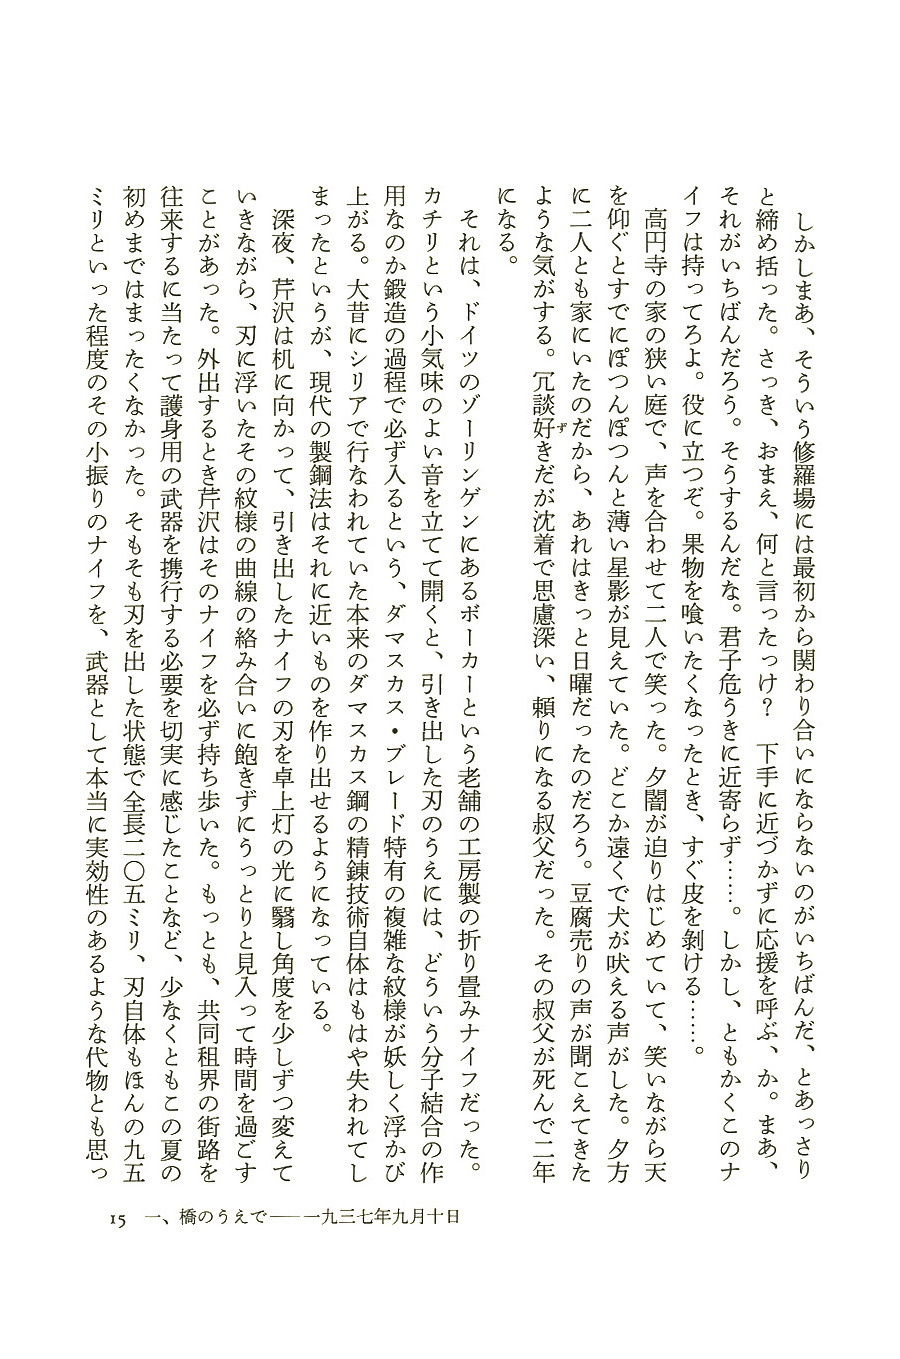 しかしまあ、そういう修羅場には最初から関わり合いにならないのがいちばんだ、とあっさり
と締め括った。さっき、おまえ、何と言ったっけ？　下手に近づかずに応援を呼ぶ、か。まあ、
それがいちばんだろう。そうするんだな。君子危うきに近寄らず……。しかし、ともかくこのナ
イフは持ってろよ。役に立つぞ。果物を喰いたくなったとき、すぐ皮を剝ける……。
高円寺の家の狭い庭で、声を合わせて二人で笑った。夕闇が迫りはじめていて、笑いながら天
を仰ぐとすでにぽつんぽつんと薄い星影が見えていた。どこか遠くで犬が吠える声がした。夕方
に二人とも家にいたのだから、あれはきっと日曜だったのだろう。豆腐売りの声が聞こえてきた
ような気がする。冗談好ずきだが沈着で思慮深い、頼りになる叔父だった。その叔父が死んで二年
になる。
それは、ドイツのゾーリンゲンにあるボーカーという老舗の工房製の折り畳みナイフだった。
カチリという小気味のよい音を立てて開くと、引き出した刃のうえには、どういう分子結合の作
用なのか鍛造の過程で必ず入るという、ダマスカス・ブレード特有の複雑な紋様が妖しく浮かび
上がる。大昔にシリアで行なわれていた本来のダマスカス鋼の精錬技術自体はもはや失われてし
まったというが、現代の製鋼法はそれに近いものを作り出せるようになっている。
深夜、芹沢は机に向かって、引き出したナイフの刃を卓上灯の光に翳し角度を少しずつ変えて
いきながら、刃に浮いたその紋様の曲線の絡み合いに飽きずにうっとりと見入って時間を過ごす
ことがあった。外出するとき芹沢はそのナイフを必ず持ち歩いた。もっとも、共同租界の街路を
往来するに当たって護身用の武器を携行する必要を切実に感じたことなど、少なくともこの夏の
初めまではまったくなかった。そもそも刃を出した状態で全長二〇五ミリ、刃自体もほんの九五
ミリといった程度のその小振りのナイフを、武器として本当に実効性のあるような代物とも思っ
15　一、橋のうえで――一九三七年九月十日